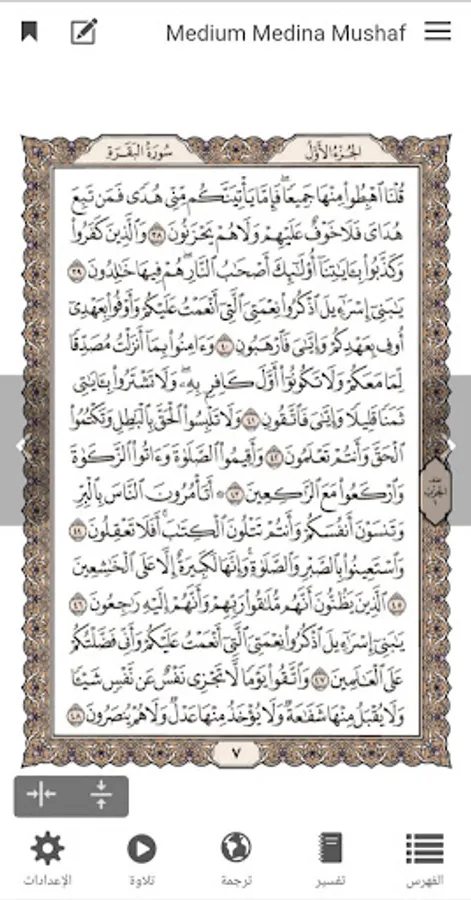 Medium Medina Mushaf
سُورَةُ البَقَرَةِ
الجُزءُ الأَوَّلُ
قُلْنَا ٱهْبِطُوا۟ مِنْهَا جَمِيعًا ۖ فَإِمَّا يَأْتِيَنَّكُم مِّنِّى هُدًى فَمَن تَبِعَ
هُدَاىَ فَلَا خَوْفٌ عَلَيْهِمْ وَلَا هُمْ يَحْزَنُونَ ٣٨ وَٱلَّذِينَ كَفَرُوا۟
وَكَذَّبُوا۟ بِـَٔايَـٰتِنَآ أُو۟لَـٰٓئِكَ أَصْحَـٰبُ ٱلنَّارِ ۖ هُمْ فِيهَا خَـٰلِدُونَ ٣٩
يَـٰبَنِىٓ إِسْرَٰٓءِيلَ ٱذْكُرُوا۟ نِعْمَتِىَ ٱلَّتِىٓ أَنْعَمْتُ عَلَيْكُمْ وَأَوْفُوا۟ بِعَهْدِىٓ
أُوفِ بِعَهْدِكُمْ وَإِيَّـٰىَ فَٱرْهَبُونِ ٤٠ وَءَامِنُوا۟ بِمَآ أَنزَلْتُ مُصَدِّقًا
لِّمَا مَعَكُمْ وَلَا تَكُونُوٓا۟ أَوَّلَ كَافِرٍۭ بِهِۦ ۖ وَلَا تَشْتَرُوا۟ بِـَٔايَـٰتِى
ثَمَنًا قَلِيلًا وَإِيَّـٰىَ فَٱتَّقُونِ ٤١ وَلَا تَلْبِسُوا۟ ٱلْحَقَّ بِٱلْبَـٰطِلِ وَتَكْتُمُوا۟
ٱلْحَقَّ وَأَنتُمْ تَعْلَمُونَ ٤٢ وَأَقِيمُوا۟ ٱلصَّلَوٰةَ وَءَاتُوا۟ ٱلزَّكَوٰةَ
وَٱرْكَعُوا۟ مَعَ ٱلرَّٰكِعِينَ ٤٣ ۞ أَتَأْمُرُونَ ٱلنَّاسَ بِٱلْبِرِّ
وَتَنسَوْنَ أَنفُسَكُمْ وَأَنتُمْ تَتْلُونَ ٱلْكِتَـٰبَ ۚ أَفَلَا تَعْقِلُونَ ٤٤
وَٱسْتَعِينُوا۟ بِٱلصَّبْرِ وَٱلصَّلَوٰةِ ۚ وَإِنَّهَا لَكَبِيرَةٌ إِلَّا عَلَى ٱلْخَـٰشِعِينَ
٤٥ ٱلَّذِينَ يَظُنُّونَ أَنَّهُم مُّلَـٰقُوا۟ رَبِّهِمْ وَأَنَّهُمْ إِلَيْهِ رَٰجِعُونَ ٤٦
يَـٰبَنِىٓ إِسْرَٰٓءِيلَ ٱذْكُرُوا۟ نِعْمَتِىَ ٱلَّتِىٓ أَنْعَمْتُ عَلَيْكُمْ وَأَنِّى فَضَّلْتُكُمْ
عَلَى ٱلْعَـٰلَمِينَ ٤٧ وَٱتَّقُوا۟ يَوْمًا لَّا تَجْزِى نَفْسٌ عَن نَّفْسٍ شَيْـًٔا
وَلَا يُقْبَلُ مِنْهَا شَفَـٰعَةٌ وَلَا يُؤْخَذُ مِنْهَا عَدْلٌ وَلَا هُمْ يُنصَرُونَ ٤٨
٧
الفهرس
تفسير
ترجمة
تلاوة
الإعدادات